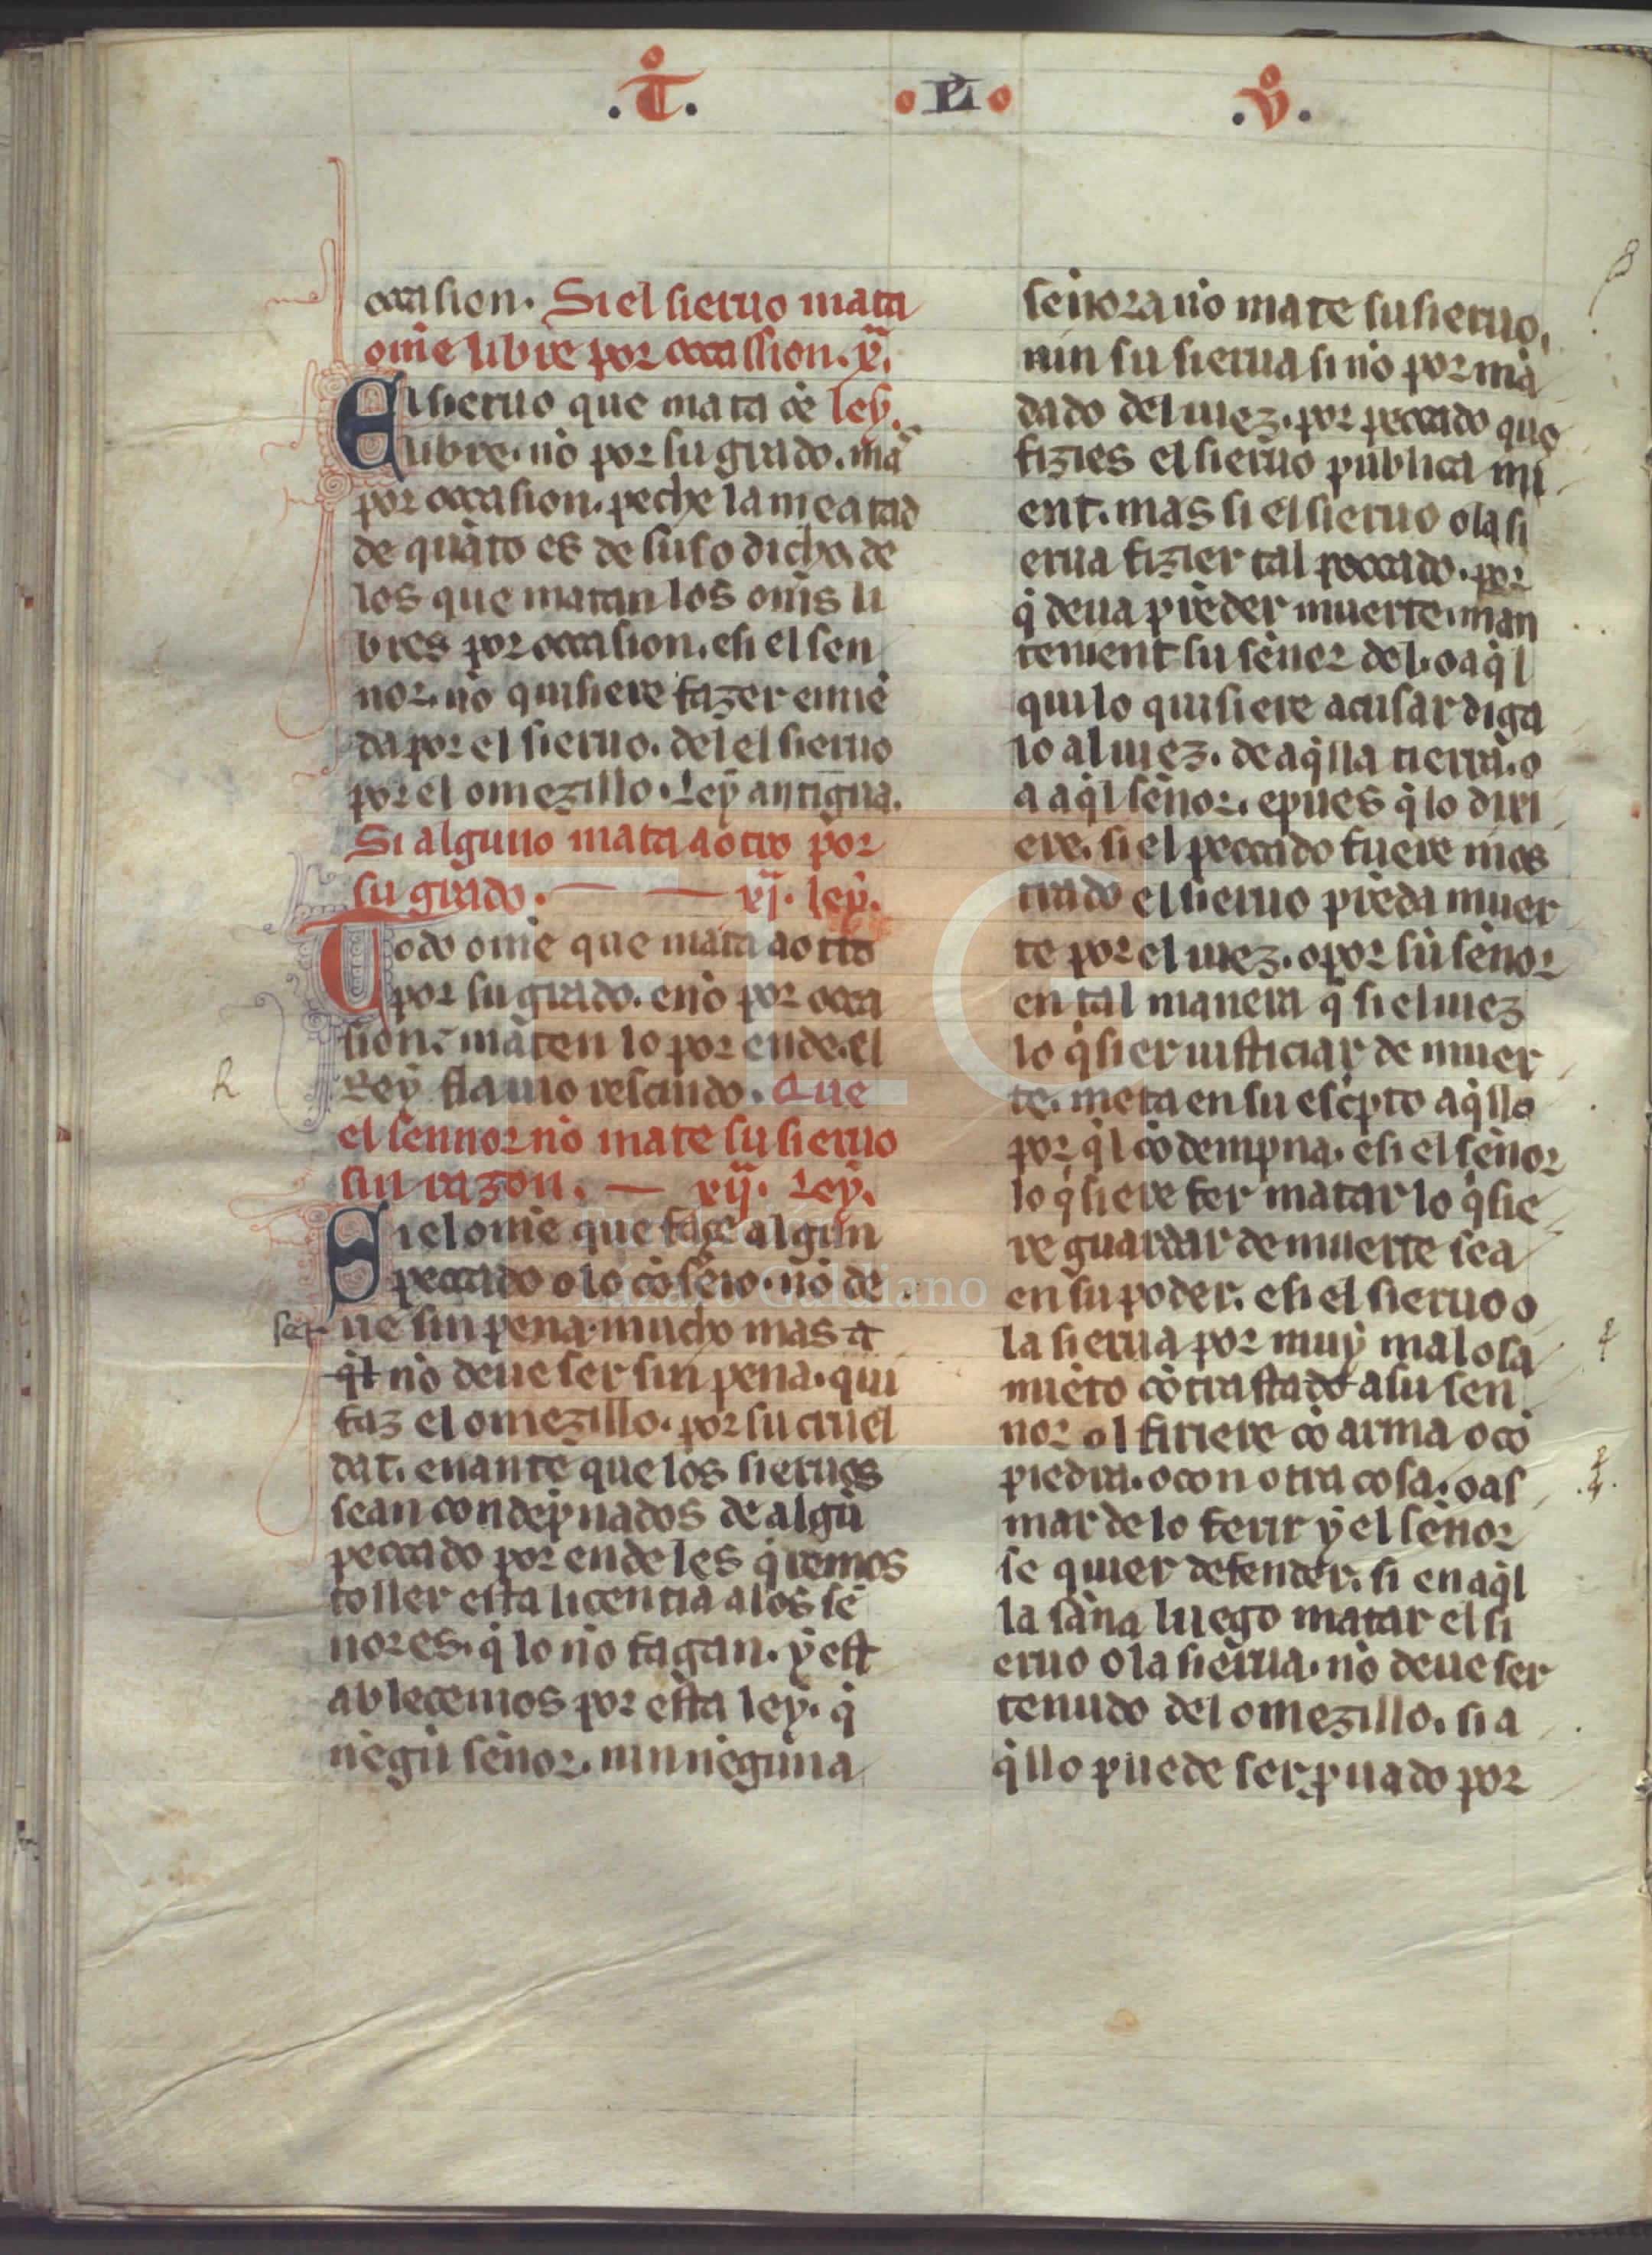 .T. .L. .V.
occasion. Si el sieruo mata
om̃e libre por occassion. x̃.
El sieruo que mata õe ley.
libre. nõ por su grado. mã
por occasion. peche la meatad
de quãto es de suso dicho. de
los que matan los om̃s li
bres por occasion. esi el sen
nor. nõ quisiere fazer emiẽ
da por el sieruo. del el sieruo
por el omezillo. Ley antigua.
Si alguno mata a otro por
su grado. xj. ley.
Todo om̃e que mata a otro
por su grado. enõ por occa
sion. mãten lo por ende. el
Rey flauio rescindo. Que
el sennor nõ mate su sieruo
sin razon. xij. Ley.
Si el om̃e que faze algun
peccado o lo cõseio. nõ de
ue sin pena. mucho mas a
q̃l nõ deue ser sin pena. qui
faz el omezillo. por su cruel
dat. enante que los sieruos
sean condẽpnados de algũ
peccado por ende les q̃remos
toller esta licentia a los sẽ
nores. q̃ lo nõ fagan. y est
ablecemos por esta ley. q̃
nẽgũ sẽnor. nin nẽguna
sẽnora nõ mate su sieruo.
nin su sierua si nõ por mã
dado del iuez. por peccado que
fizies el sieruo publica mi
ent. mas si el sieruo o la si
erua fizier tal peccado. por
q̃ deua prẽder muerte. man
tenient su sẽner del. o aq̃l
qui lo quisiere acusar diga
lo al iuez. de aq̃lla tierra. o
a aq̃l sẽnor. epues q̃ lo dixi
ere. si el peccado fuere mos
trado el sieruo prẽda muer
te por el iuez. o por sũ sẽnor
en tal manera q̃ si el iuez
lo q̃sier iusticiar de muer
te. meta en su esc̃pto aq̃llo
por q̃l cõdempna. esi el sẽnor
lo q̃siere fer matar lo q̃sie
re guardar de muerte sea
en su poder. esi el sieruo o
la sierua por muy mal osa
miẽto cõtrastado a su sen
nor ol firiere cõ arma o cõ
piedra. o con otra cosa. o as
mar de lo ferir y el sẽnor
se quier defender. si en aq̃l
la sãna luego matar el si
eruo o la sierua. nõ deue ser
tenudo del omezillo. si a
q̃llo puede ser p̃uado por